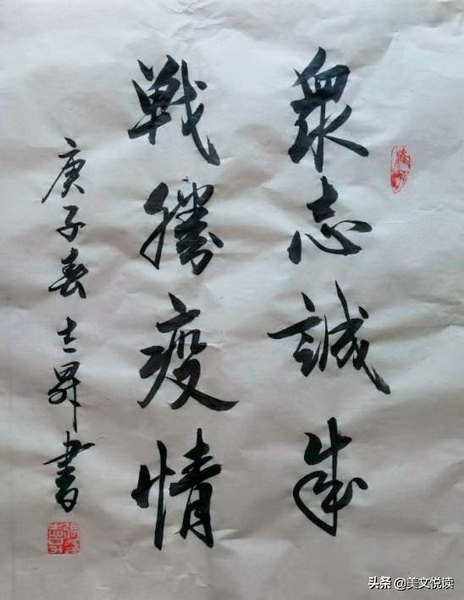 眾志誠成
戦勝疫情
庚子春士昇書
头条 @美文悦读